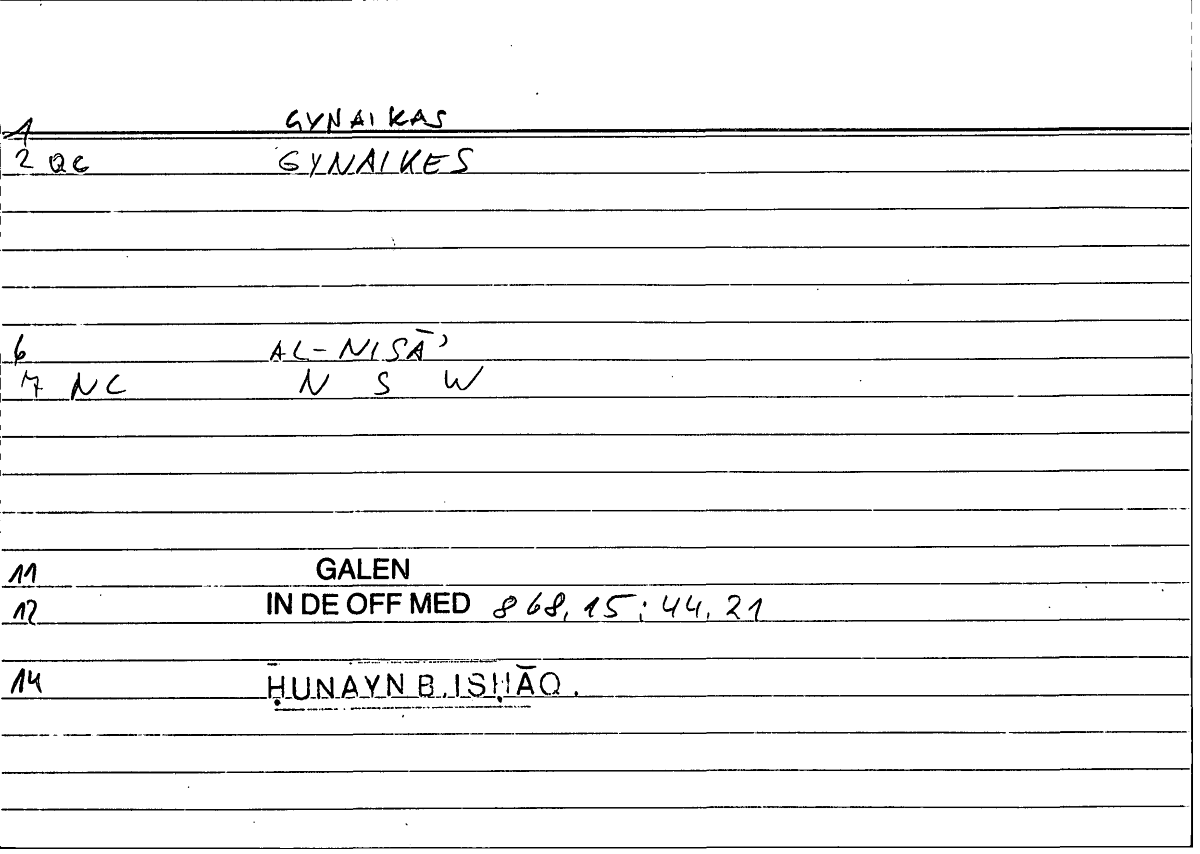 1 GYNAIKAS
2 QG GYNAIKES
6 AL-NISĀʾ
7 NC N S W
11 GALEN
12 IN DE OFF MED 868,15; 44,21
14 ḤUNAYN B. ISḤĀQ.